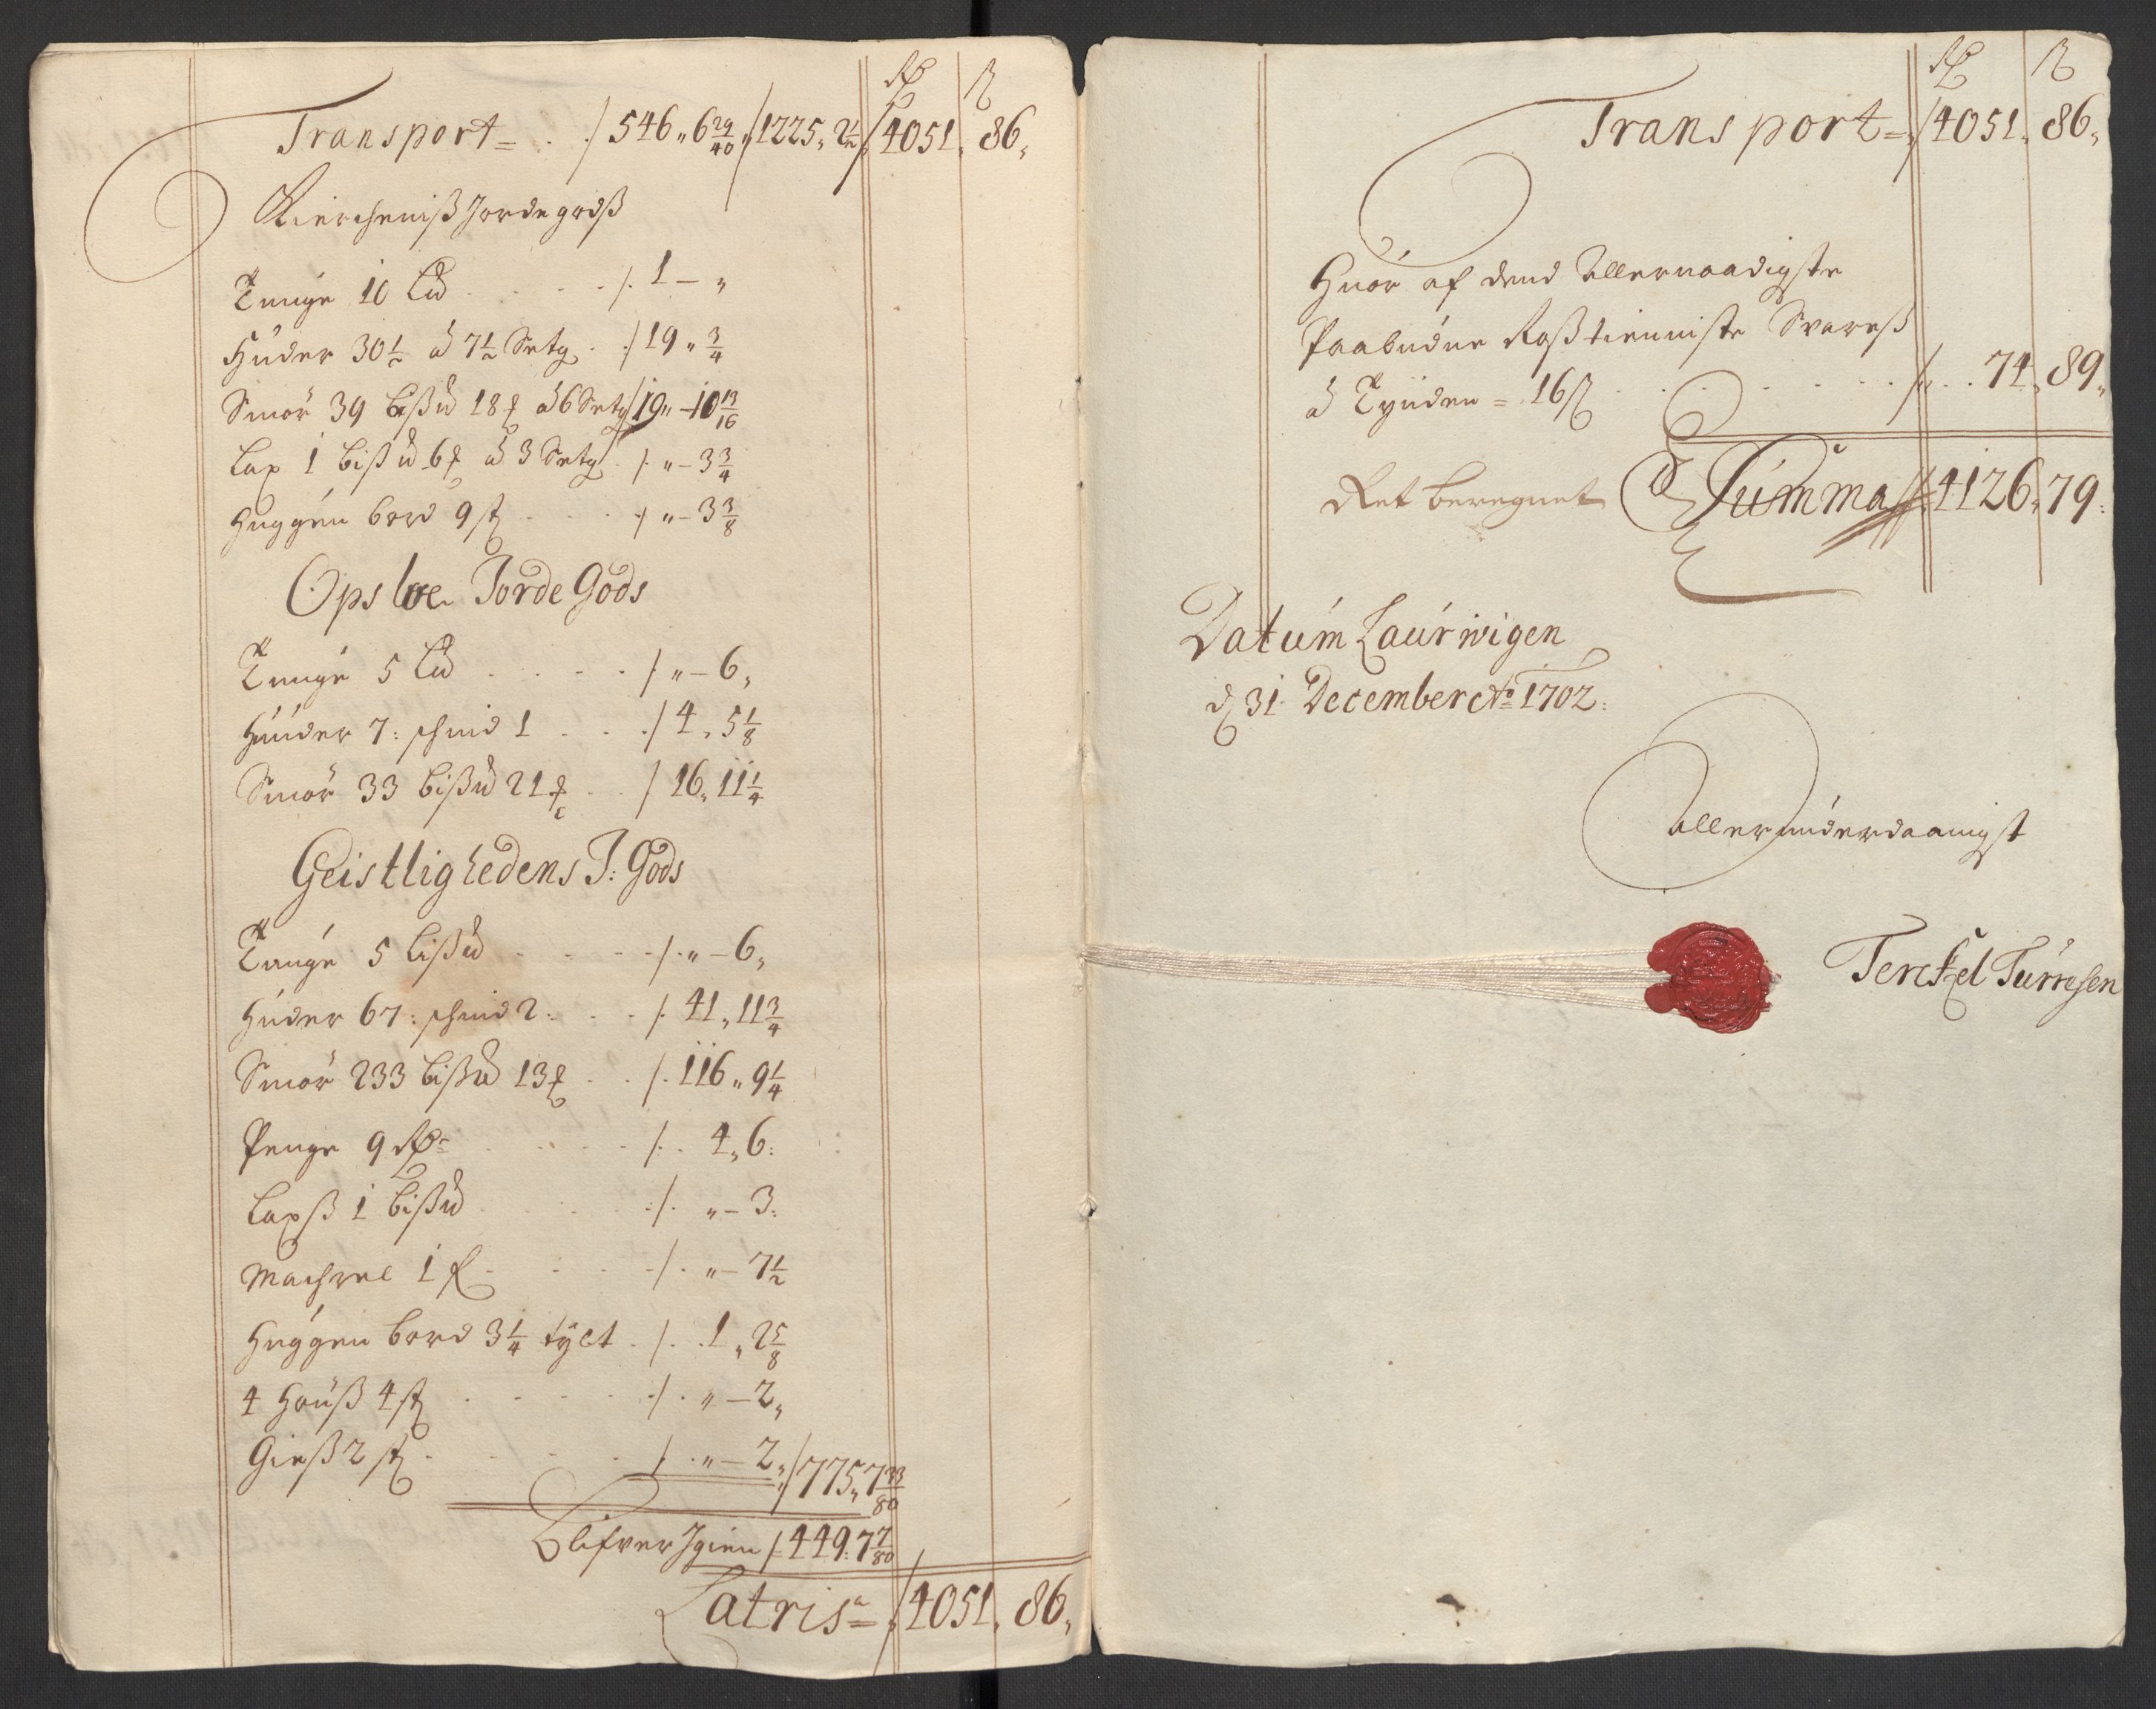 Rdr ß
Transport = ./ 546 „ 6 29/40 „/ 1225 „ 2 1/2 „/ 4051 „ 86 „
Kiercheniß Jordegodß
Tunge 10 Lƀ . . . . ./. 1 – „
Huder 30 1/2 à 7 1/2 Setg . ./ 19 „ 3/4
Smör 39 bißƀ 18 ℔ à 6 Setg / 19 „ – 10 13/16
Lax 1 bißƀ 6 ℔ à 3 Setg . /. „ – 3 3/4
Huggen bord 9 st . . . ./ „ – 3 3/8
Opsloe Jorde Gods
Tunge 5 Lƀ . . . . ./ „ – 6 „
Huuder 7: 1 . . ./ 4 „ 5 1/8
Smör 33 bißƀ 21 ℔ . . / 16 „ 11 1/4
Geistlighedens J: Gods
Tunge 5 Lißƀ . . . ./. „ – 6 „
Huder 67: 2 . . . /. 41 „ 11 3/4
Smör 233 bißƀ 13 ℔ . . /. 116 „ 9 1/4
Penge 9 Rdr . . . . ./. . 4 „ 6 :
Laxß 1 bißƀ . . . . ./. „ – 3 :
Machrel 1 . . . ./. „ – 7 1/2
Huggen bord 3 1/4 tylt . /. . 1 „ 2 5/8
4 Hauß 4 st . . . . ./. „ – 2 „
Gieß 2 st . . . . /. . „ – 2 „ ./ 775 „ 7 33/80
Blifver Igien / 449 : 7 7/80
Latris = ./ 4051 „ 86 „
Rdr ß
Transport = ./ 4051 „ 86 „
Huor af dend Allernaadigste
Paabudne Roßtienniste Svareß
à Tynden = 16 ß . . . . . . ./. . . 74 „ 89 „
Ret beregnet Summa // 4126 „ 79 :
Datum Laurwigen
d 31 December Ao 1702 :
Allerunderdaanigst
Terckel Türresen